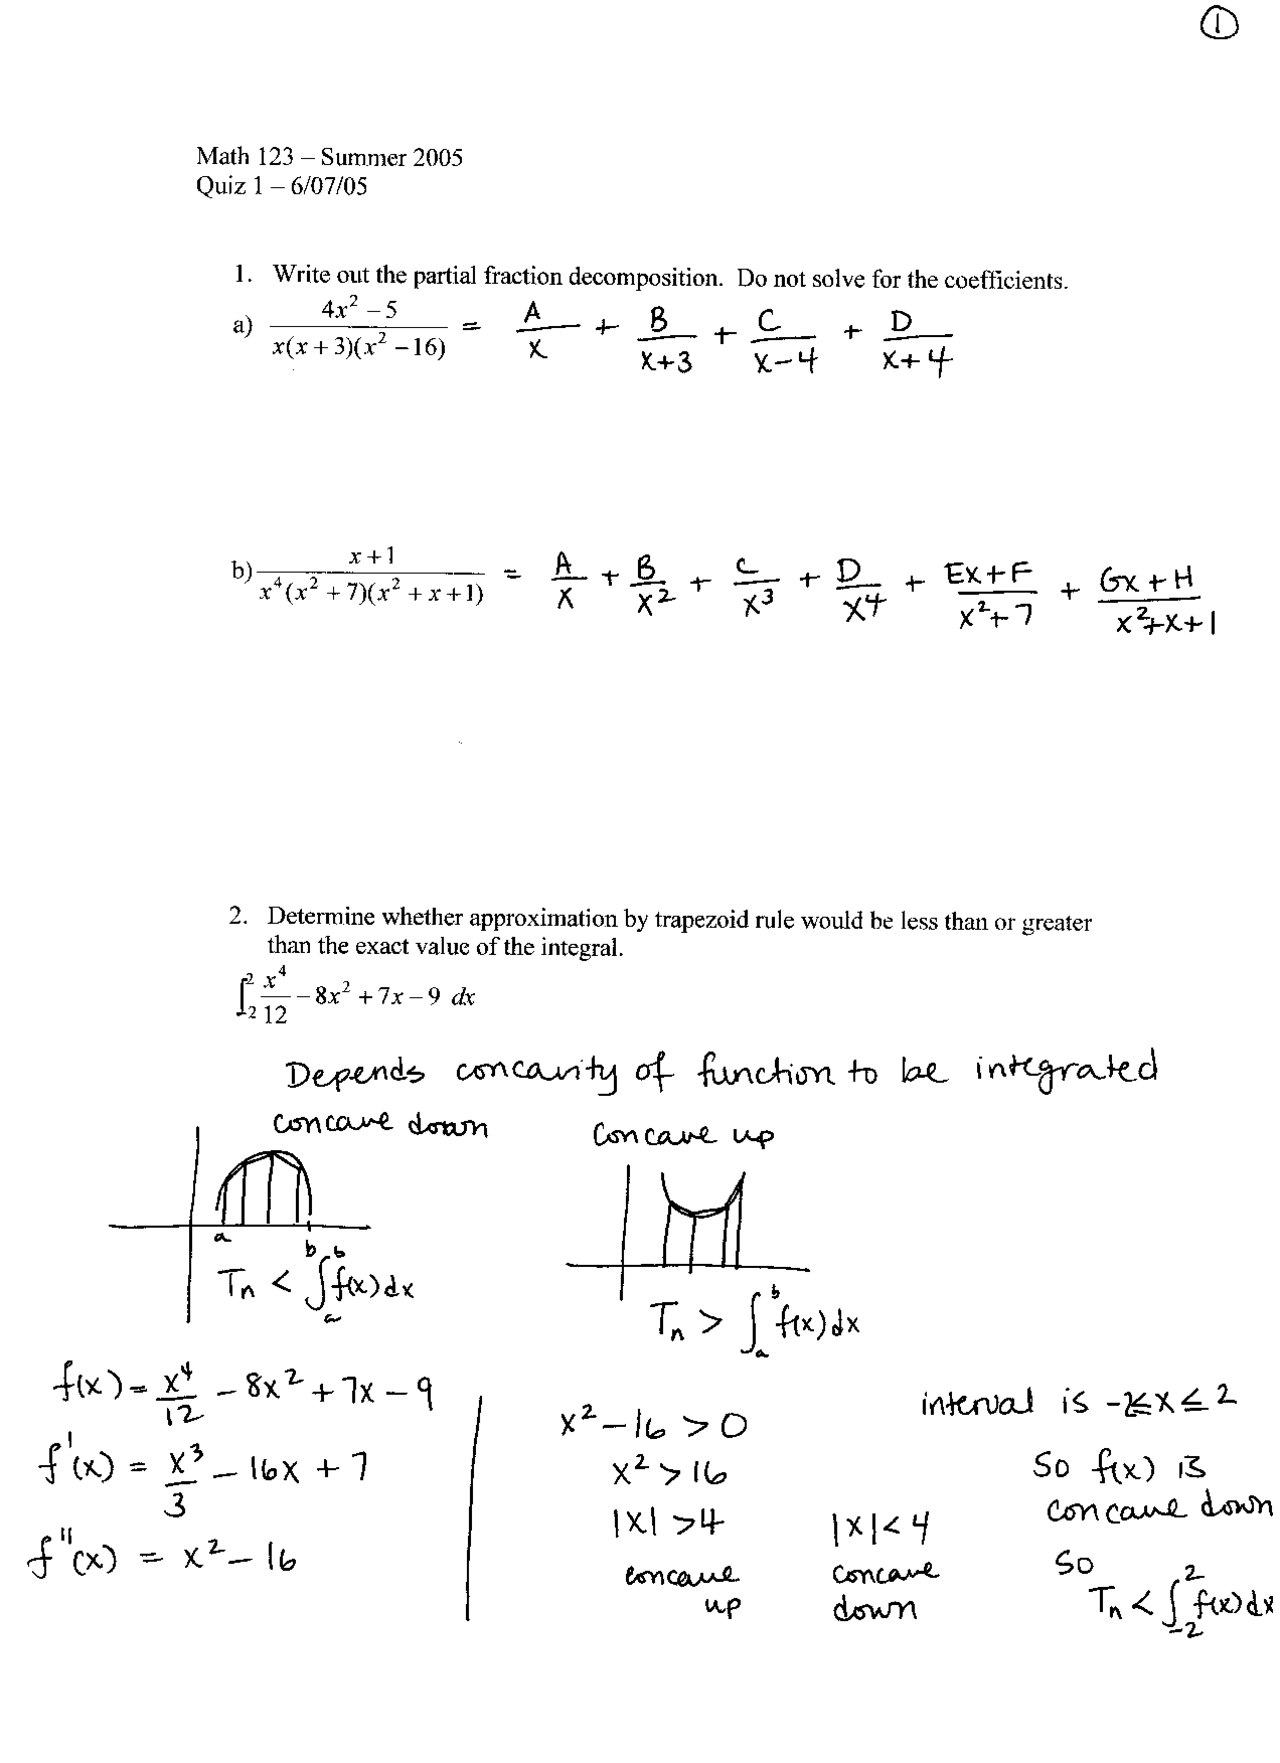 1
Math 123 – Summer 2005
Quiz 1 – 6/07/05
1. Write out the partial fraction decomposition. Do not solve for the coefficients.
a) (4x² – 5)/(x(x + 3)(x² – 16)) = A/x + B/(x+3) + C/(x-4) + D/(x+4)
b) (x + 1)/(x⁴(x² + 7)(x² + x + 1)) = A/x + B/x² + C/x³ + D/x⁴ + (Ex+F)/(x²+7) + (Gx+H)/(x²+x+1)
2. Determine whether approximation by trapezoid rule would be less than or greater
than the exact value of the integral.
∫₋₂² x⁴/12 – 8x² + 7x – 9 dx
Depends concavity of function to be integrated
concave down
concave up
a b
Tn < ∫ₐᵇ f(x)dx
Tn > ∫ₐᵇ f(x)dx
f(x) = x⁴/12 – 8x² + 7x – 9
f'(x) = x³/3 – 16x + 7
f''(x) = x² – 16
x² – 16 > 0
x² > 16
|x| > 4
concave
up
|x| < 4
concave
down
interval is -2≤x≤2
so f(x) is
concave down
so
Tn < ∫₋₂² f(x)dx